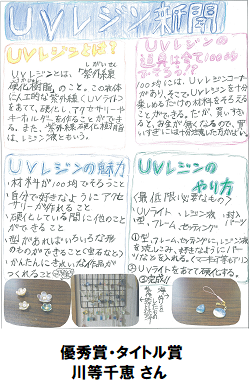 UVレジン新聞
UVレジンとは?
UVレジンとは、「紫外線
硬化樹脂」のこと。この液体
に人工的な紫外線(UVライト)
をあてて、硬化し、アクセサリーや
キーホルダーを作ることができ
る。また、紫外線硬化樹脂は、
レジン液ともいう。
UVレジンの
道具は全て100均
100均には、UVレジンコーナー
があり、そこで、UVレジンを十分
楽しめるだけの材料をそろえる
ことができる。だが、買いすぎ
UVレジンの魅力
・材料が100均でそろうこと
・自分で好きなようにアクセ
サリーが作れること
・硬化している間に他のこと
ができること
・型があればいろいろな形
のものができること
・かんたんにきれいな作品が
つくれること
UVレジンの
やり方
〈最低限必要なもの〉
UVライト・レジン液・封入
パーツ
型、フレーム、セッティング
①型、フレーム、セッティングに、レジン液
を流しこみ、好きなようにパー
ツなどを入れる。
②UVライトをあてて硬化する。
③完成。
優秀賞・タイトル賞
川等千恵 さん